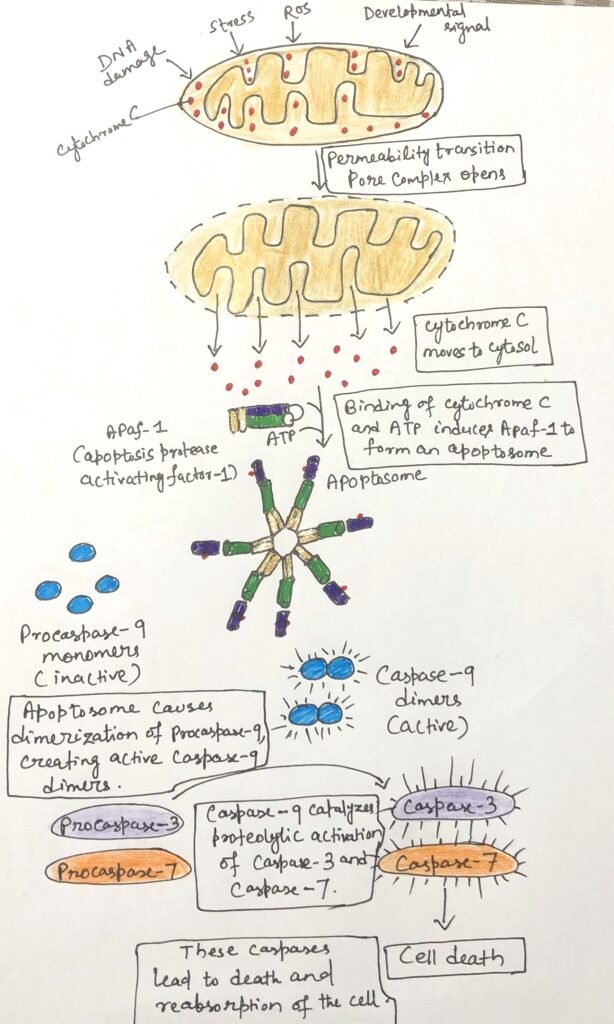 Stress
ROS
Developmental
signal
DNA
damage
Cytochrome C
Permeability transition
Pore Complex opens
Cytochrome C
moves to cytosol
Binding of cytochrome C
and ATP induces Apaf-1 to
form an apoptosome
APaf-1
(apoptosis protease
activating factor-1)
ATP
Apoptosome
Procaspase-9
monomers
(inactive)
Caspase-9
dimers
(active)
Apoptosome causes
dimerization of Procaspase-9,
creating active Caspase-9
dimers.
Procaspase-3
Procaspase-7
Caspase-9 catalyzes
proteolylic activation
of Caspase-3 and
Caspase-7.
Caspase-3
Caspase-7
Cell death
These caspases
lead to death and
reabsorption of the cell.